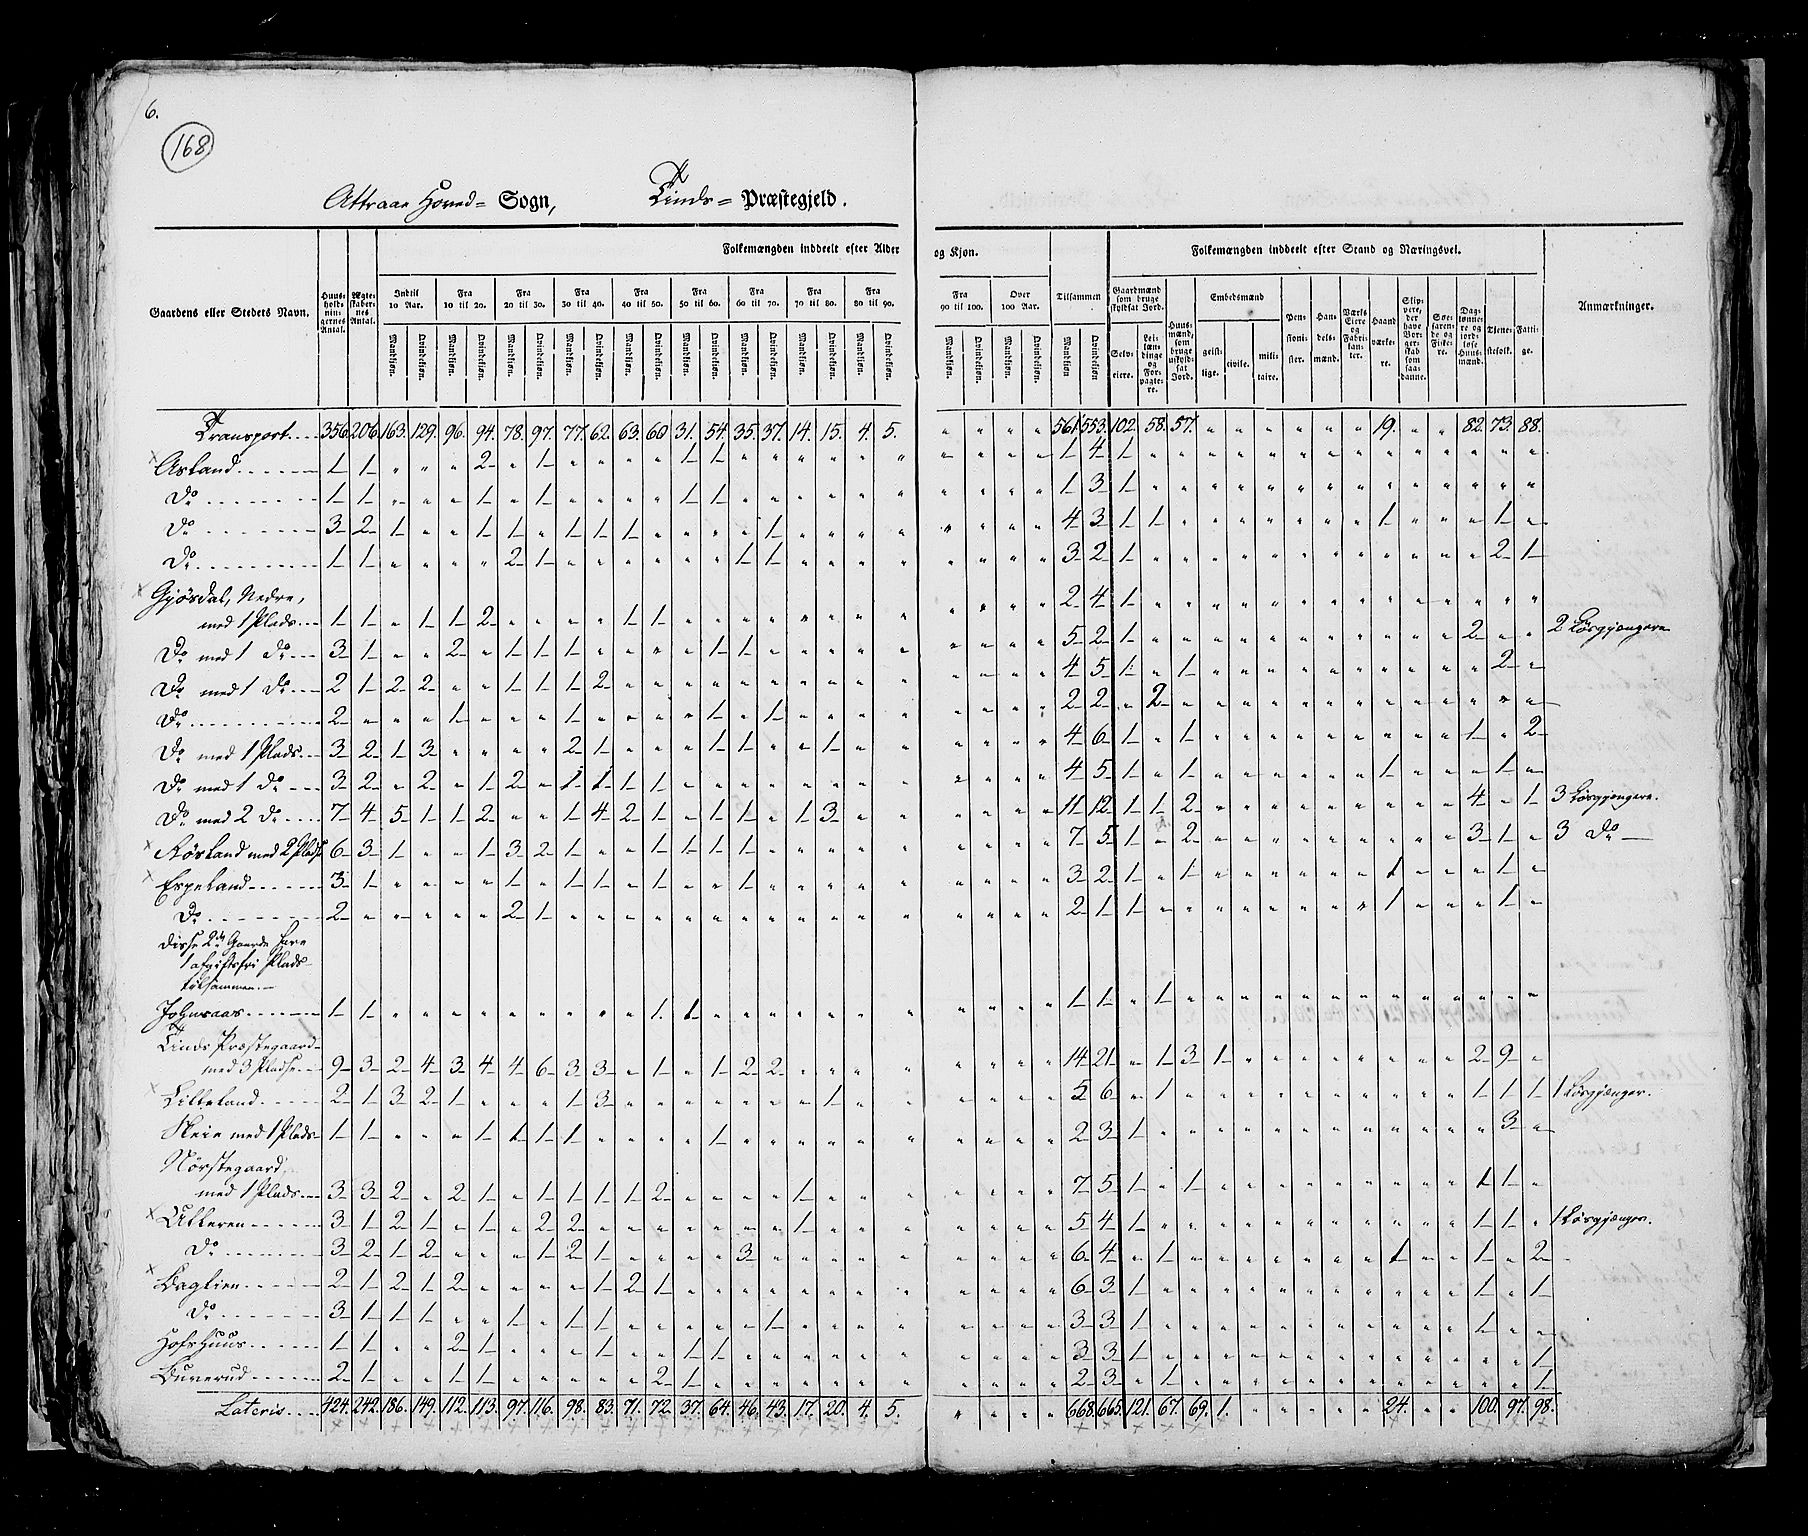 6.
168
Attraae Hoved= Sogn, Tinds= Præstegjeld.
Gaardens eller Stedets Navn. Huusholdningernes Antal. Ægteskabernes Antal. Folkemængden inddeelt efter Alder og Kjøn. Tilsammen Folkemængden inddeelt efter Stand og Næringsvei. Anmærkninger.
Indtil 10 Aar. Fra 10 til 20. Fra 20 til 30. Fra 30 til 40. Fra 40 til 50. Fra 50 til 60. Fra 60 til 70. Fra 70 til 80. Fra 80 til 90. Fra 90 til 100. Over 100 Aar.
Mandkjøn. Qvindekjøn.
Gaardmænd som bruge skyldsat Jord. Selveiere. Leilændinge og Forpagtere. Huusmænd, som bruge uskyldsat Jord. Embedsmænd geistlige. civile. militaire. Pensionister. Handelsmænd. Værks Eiere og Fabrikanter. Haandværkere. Skippere, der have Borgerskab som saadanne. Søefarende og Fiskere. Daglønnere og jordløse Huusmænd. Tjenestefolk. Fattige.
Transport.... 356. 206. 163. 129. 96. 94. 78. 97. 77. 62. 63. 60 31. 54. 35. 37. 14. 15. 4. 5. " " " " 561. 553. 102. 58. 57. " " " " " " 19. " " 82. 73. 88.
Asland 1 1 " " " 2 " 1 " " " " 1 1 " " " " " " " " " " 1 4 1 " " " " " " " " " " " " " "
Do 1 1 " " " 1 " 1 " " " " 1 1 " " " " " " " " " " 1 3 1 " " " " " " " " " " " " " "
Do 3 2 1 " " 1 1 " 1 1 1 " " " " 1 " " " " " " " " 4 3 1 1 " " " " " " " 1 " " " 1 "
Do 1 1 " " " " 2 1 " " " " " " 1 1 " " " " " " " " 3 2 1 " " " " " " " " " " " " 2 1
Gjøsdal, Nedre,
med 1 Plads 1 1 " 1 1 2 " " " " 1 1 " " " " " " " " " " " " 2 4 1 " " " " " " " " " " " " " "
Do med 1 Do 3 1 " " 2 " 1 1 1 " " " " 1 1 " " " " " " " " " 5 2 1 " " " " " " " " " " " 2 " " 2 Løsgjængere
Do med 1 Do 2 1 2 2 " " 1 1 1 2 " " " " " " " " " " " " " " 4 5 1 " 1 " " " " " " " " " " 2 "
Do 2 " " " 1 " " " 1 " " " " 1 " 1 " " " " " " " " 2 2 " 2 " " " " " " " " " " " " "
Do med 1 Plads 3 2 1 3 " " " " 2 1 " " " 1 1 " " 1 " " " " " " 4 6 1 " 1 " " " " " " " " " 1 " 2
Do med 1 Do 3 2 " 2 " 1 2 " 1 1 1 1 " " " " " " " " " " " " 4 5 1 " 1 " " " " " " 1 " " " 1 "
Do med 2 Do 7 4 5 1 1 2 " " 1 4 2 1 " 1 1 " 1 3 " " " " " " 11 12 1 1 2 " " " " " " " " " 4 " 1 3 Løsgjængere.
Røsland med 2 Pladse 6 3 1 " " 1 3 2 1 " " 1 1 1 1 " " " " " " " " " 7 5 1 " 2 " " " " " " " " " 3 1 " 3 Do
Espeland 3 1 " " " " 1 " 1 1 " 1 " " 1 " " " " " " " " " 3 2 1 " 1 " " " " " " 1 " " " 1 "
Do 2 " " " " " 2 1 " " " " " " " " " " " " " " " " 2 1 1 " " " " " " " " 1 " " " 1 "
disse 2de Gaarde have
1 afgiftsfri Plads
tilsammen.
Johnsaas 1 1 " " " " " " " " " 1 1 " " " " " " " " " " " 1 1 " 1 " " " " " " " " " " " " "
Tinds Præstegaard
med 3 Pladse 9 3 2 4 3 4 4 6 3 3 " 1 " 1 2 2 " " " " " " " " 14 21 " 1 3 1 " " " " " " " " 2 9 "
Lilleland 2 1 3 2 1 " " " 1 3 " " " " " " " 1 " " " " " " 5 6 " 1 " " " " " " " " " " 1 1 1 1 Løsgjænger.
Neie med 1 Plads 1 1 " " " 1 1 1 1 " " " " 1 " " " " " " " " " " 2 3 1 " " " " " " " " " " " " 3 "
Nørstegaard,
med 1 Plads 3 3 2 " 2 1 " 1 1 1 1 2 " " " " 1 " " " " " " " 7 5 1 " 1 " " " " " " " " " 1 1 "
Utteren 3 1 2 1 " 1 " 2 2 " " " " " " " 1 " " " " " " " 5 4 1 " " " " " " " " " " " 1 1 " 1 Løsgjænger.
Do 3 2 1 2 " " " 1 2 1 " " " " 3 " " " " " " " " " 6 4 " 1 " " " " " " " 1 " " 1 " 2
Baglien 2 1 2 1 2 " " " " 1 2 1 " " " " " " " " " " " " 6 3 1 " " " " " " " " " " " 1 " 1
Do 3 1 1 1 " " 1 " 1 1 " " " " " 1 " " " " " " " " 3 3 1 " " " " " " " " " " " 1 " "
Hofshuus 1 1 " " 2 1 " " " 1 " " 1 1 " " " " " " " " " " 3 3 1 " " " " " " " " " " " " " 1
Buverud 2 1 " " 1 1 " " " " " 2 1 " " " " " " " " " " " 2 3 " 1 " " " " " " " " " " " " 1
Lateris.... 424. 242. 186. 149. 112. 113. 97. 116. 98. 83. 71. 72. 37. 64. 46. 43. 17. 20. 4. 5. " " " " 668. 665. 121. 67. 69. 1. " " " " " 24. " " 100. 97. 98.